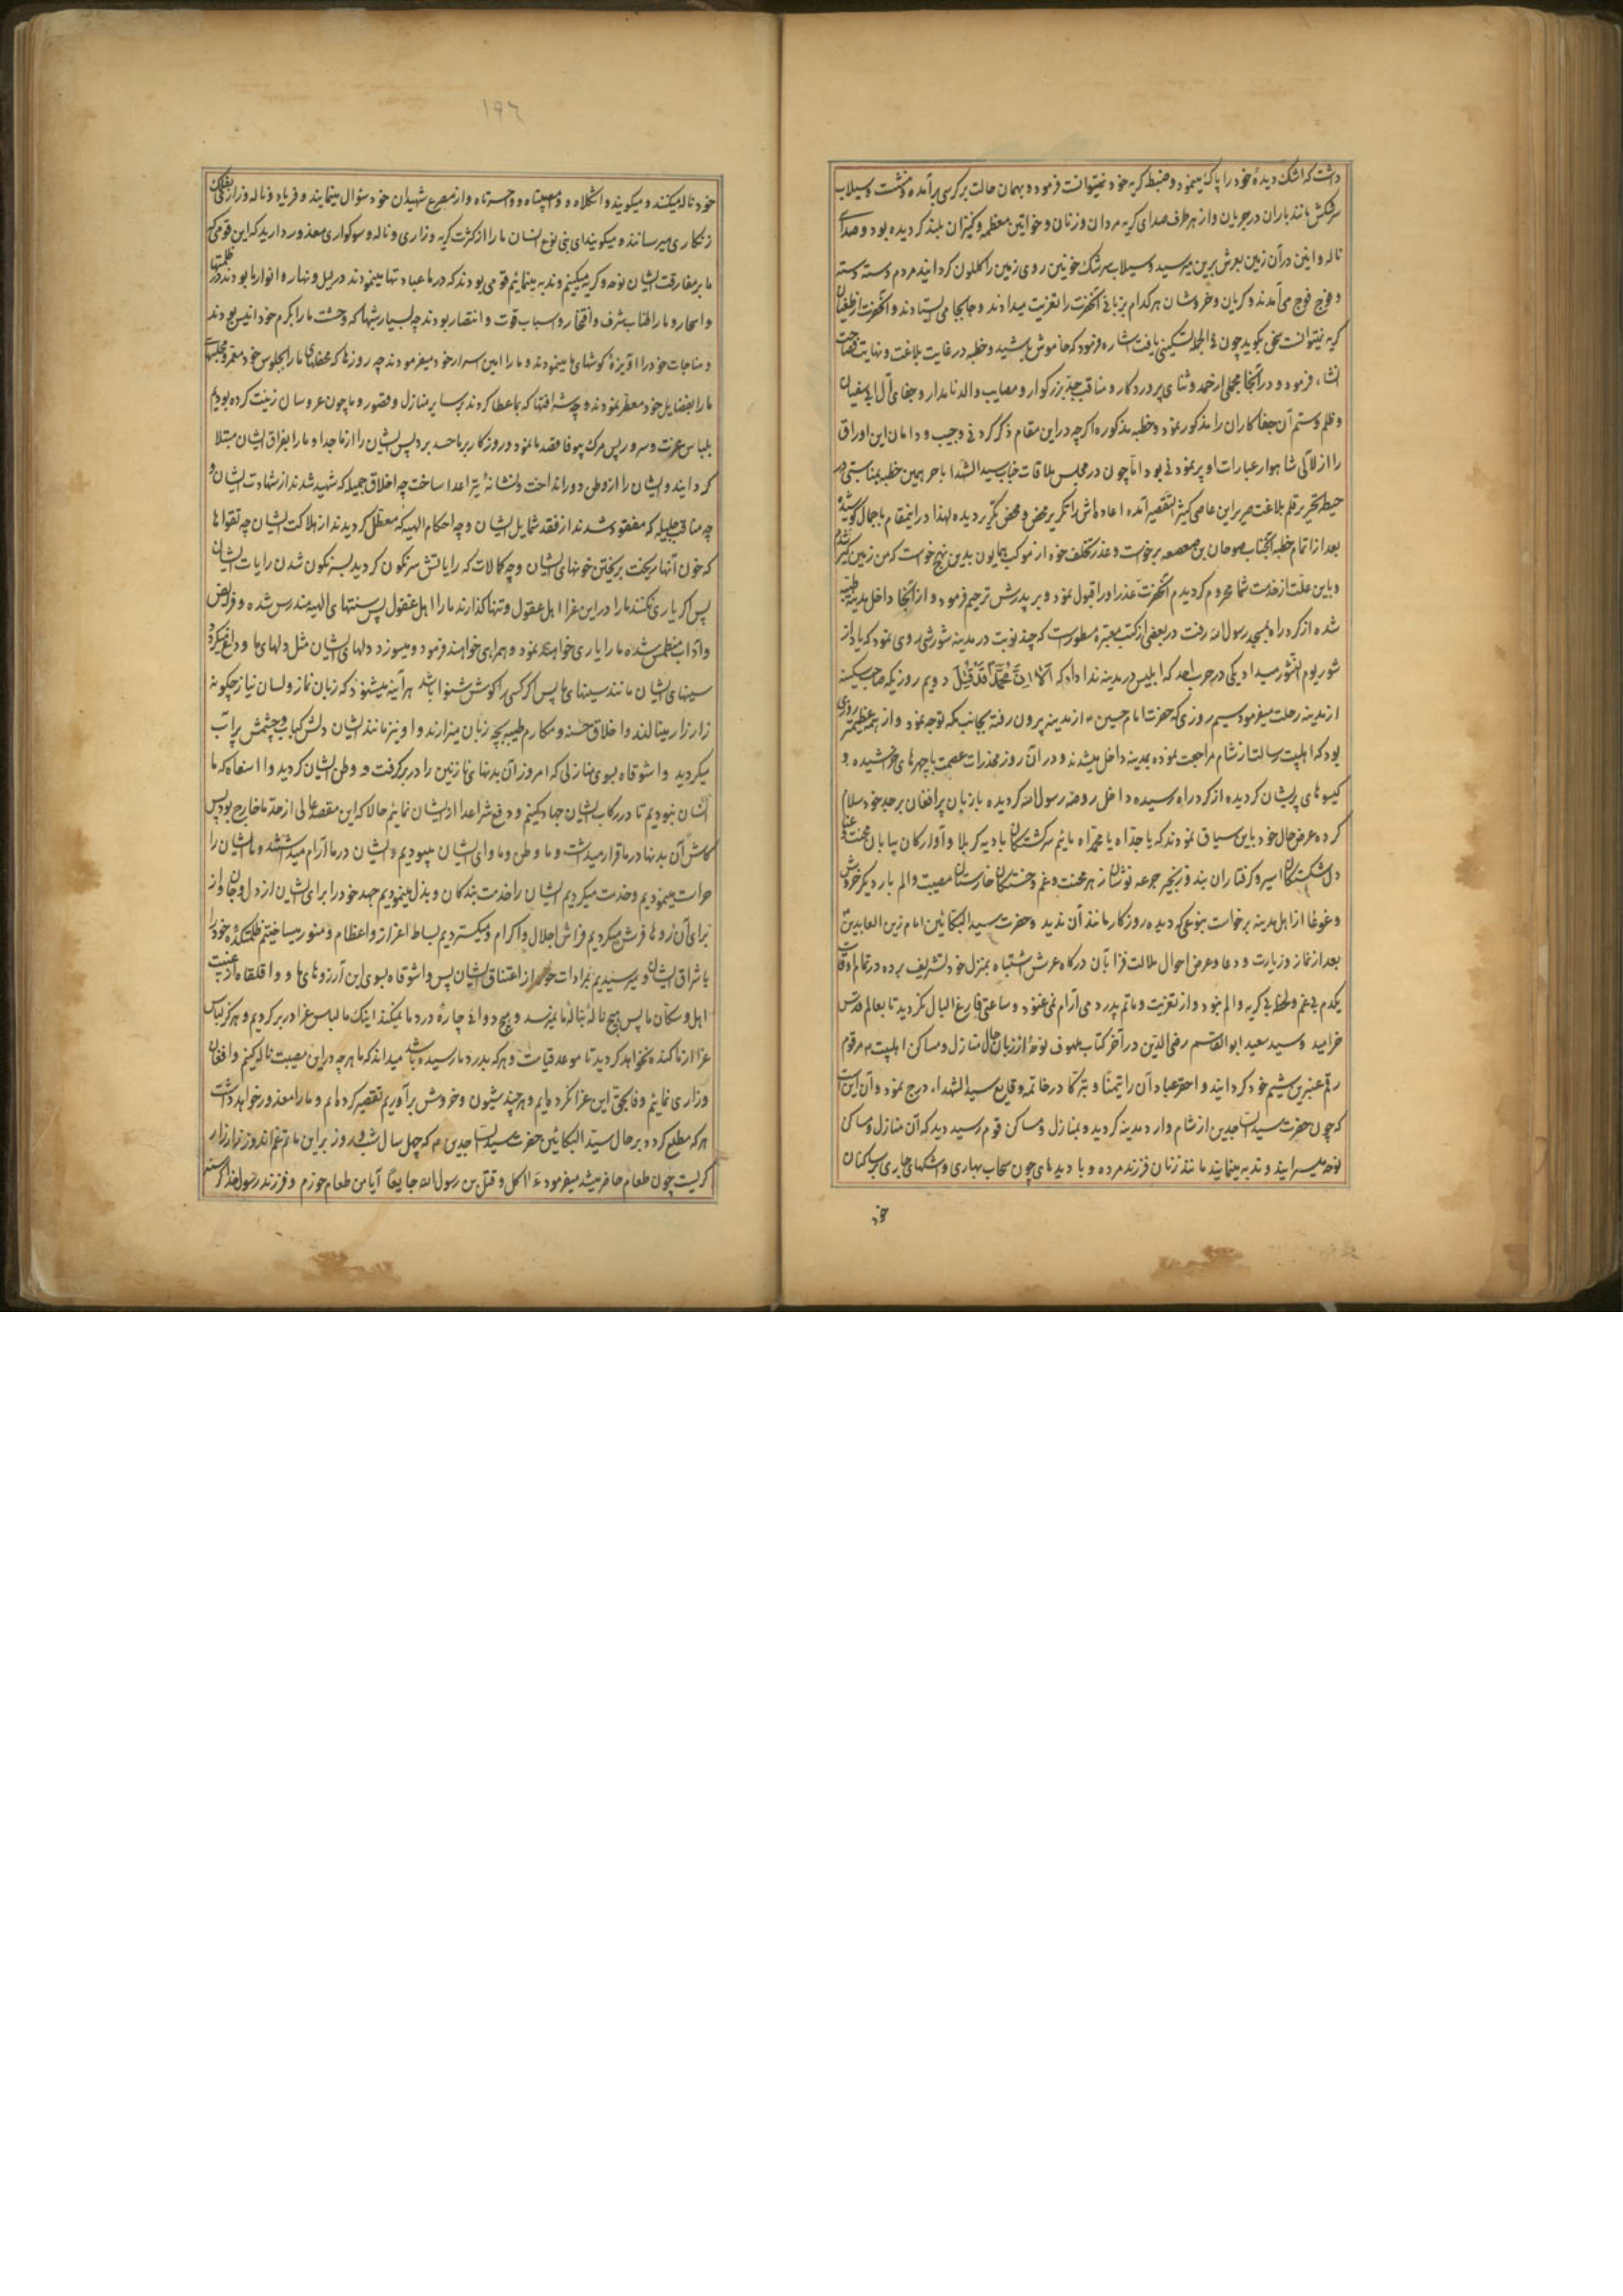 داشت که اشک دیدهٔ خود را پاک مینمود و ضبط گریه خود نمیتوانست فرمود و بهمان حالت بر کرسی برآمده نشست و سیلاب
سرشکش مانند باران در جریان و از هر طرف صدای گریه مردان و زنان و خواتین معظمه و کنیزان بلند گردیده بود و صدای
ناله و انین در آن زمین بعرش برین میرسید و سیلاب سرشک خونین روی زمین را گلگون گردانید مردم دسته دسته
و فوج فوج می آمدند و گریان و خروشان هر کدام بزبانی آنحضرت را تعزیت میدادند و جابجا می ایستادند و آنحضرت از طغیان
گریه نمیتوانست سخنی بگوید چون فی الجمله تسکینی یافت اشاره فرمود که خاموش باشید و خطبه در غایت بلاغت و نهایت فصاحت
انشاء فرمود و در آنجا مجملی از حمد و ثنای پروردگار و مناقب جد بزرگوار و مصایب والد نامدار و جفای آل ابی سفیان
و ظلم و ستم آن جفاکاران را مذکور نمود و خطبه مذکوره اگرچه در این مقام ذکر کردنی و جیب و دامان این اوراق
را از لآلی شاهوار عبارات او پر نمودنی بود اما چون در مجلس ملاقات جناب سید الشهدا با حر همین خطبه بمناسبتی در
حیطه تحریر قلم بلاغت صریر این عاصی کثیر التقصیر آمده اعاده اش را تکریر محض و محض تکریر دیده لهذا در اینمقام باجمال کوشیده
بعد از اتمام خطبه آنجناب صوحان بن صعصعه برخاست و عذر تخلف خود از موکب همایون بدین نهج خواست که من زمین گیر شدم
و باین علت از خدمت شما محروم گردیدم آنحضرت عذر او را قبول نمود و بر پدرش ترحیم فرمود و از آنجا داخل مدینه طیبه
شده از گرد راه بمسجد رسول الله رفت در بعضی از کتب معتبره مسطور است که چند نوبت در مدینه شورشی روی نمود که یاد از
شور یوم النشور میداد یکی در حرب احد که ابلیس در مدینه ندا داد که اَلا اِنَّ مُحَمَّداً قَدْ قُتِلَ دویم روزیکه صاحب سکینه
از مدینه رحلت میفرمود سیم روزی که حضرت امام حسین ع از مدینه بیرون رفته بجانب مکه توجه نمود و از همه عظیمتر روزی
بود که اهلبیت رسالت از شام مراجعت نموده بمدینه داخل میشدند و در آن روز مخدرات عصمت با چهرهای خراشیده و
گیسوهای پریشان گردیده از گرد راه رسیده داخل روضه رسول الله گردیده با زبان پر افغان بر جد خود سلام
کرده عرض حال خود باین سیاق نمودند که یا جداه یا محمداه مائیم سرگشتگان بادیه کربلا و آوارگان بیابان محنت و عنا
دل شکستگان اسیر و گرفتاران بند و زنجیر جرعه نوشان زهر محنت و غم و خستگان خارستان مصیبت و الم بار دیگر خروش
و غوغا از اهل مدینه برخاست بنوعی که دیده روزگار مانند آن ندید و حضرت سید البکائین امام زین العابدین
بعد از نماز و زیارت و دعا و عرض احوال ملالت فزا بآن درگاه عرش اشتباه بمنزل خود تشریف برده در تمام اوقات
یکدم بی غم و لحظهٔ بی گریه و الم نبود و از تعزیت و ماتم پدر دمی آرام نمی غنود و ساعتی فارغ البال نگردید تا بعالم قدس
خرامید و سید سعید ابو القاسم رضی الدین در آخر کتاب ملهوف نوحهٔ از زبان حال منازل و مساکن اهلبیت ع مرقوم
رقم عنبرین شیم خود گردانید و احقر عباد آن را تیمناً و تبرکاً در خاتمه وقایع سید الشهداء درج نمود و آن این است
که چون حضرت سید الساجدین از شام وارد مدینه گردید و بمنازل و مساکن قوم رسید دید که آن منازل و مساکن
نوحه میسرایند و ندبه مینمایند مانند زنان فرزند مرده و با دیدهای چون سحاب بهاری و اشکهای جاری بر ساکنان
خود
١٩٦
خود ناله میکنند و میگویند واثکلاه و وامصیبتاه و واحسرتاه و از مصرع شهیدان خود سؤال مینمایند و فریاد و ناله و زاری بفلک
زنگاری میرسانند و میگویند ای بنی نوع انسان ما را از کثرت گریه و زاری و ناله و سوگواری معذور دارید که این قومی که
ما بر مفارقت ایشان نوحه و گریه میکنیم و ندبه مینمائیم قومی بودند که در ما عبادتها مینمودند در لیل و نهار و انوار ما بودند در ظلمتها
و اسحار و ما را اطناب شرف و افتخار و اسباب قوت و انتصار بودند چه بسیار شبها که وحشت ما را بکرم خود انیس بودند
و مناجات خود را آویزهٔ گوشهای ما مینمودند و ما را امین اسرار خود میفرمودند چه روزها که محفلهای ما را بجلوس خود معمر و مجلسهای
ما را بفضایل خود معطر نمودند و چه شرافتها که بما عطا کردند بر سایر منازل و قصور و ما چون عروسان زینت کرده بودیم
بلباس عزت و سرور پس مرگ بیوفا قصد ما نمود و روزگار بر ما حسد برد پس ایشان را از ما جدا و ما را بفراق ایشان مبتلا
گردانید و ایشان را از وطن دور انداخت و نشانهٔ تیر اعدا ساخت چه اخلاق جمیله که شهید شدند از شهادت ایشان و
چه مناقب جلیله که مفقود شدند از فقد شمایل ایشان و چه احکام الهیه که معطل گردیدند از هلاکت ایشان چه تقواها
که خون آنها ریخت بریختن خونهای ایشان و چه کمالات که رایاتش سرنگون گردید بسرنگون شدن رایات ایشان
پس اگر یاری نکنند ما را در این عزا اهل عقول و تنها گذارند ما را اهل عقول پس سنتهای الهیه مندرس شده و فرایض
و آداب منطمس شده ما را یاری خواهند نمود و همراهی خواهند فرمود و میسوزد دلهای ایشان مثل دلهای ما و داغ میگردد
سینهای ایشان مانند سینهای ما پس اگر کسی را گوش شنوا باشد هر آینه میشنود که زبان نماز و لسان نیاز چگونه
زار زار مینالند و اخلاق حسنه و مکارم طیبه بچه زبان میزارند و او نیز مانند ایشان دلش کباب و چشمش پر آب
میگردید واشوقاه بسوی منازلی که امروز آن بدنهای نازنین را در بر گرفت و وطن ایشان گردید وااسفاه که ما
انسان نبودیم تا در رکاب ایشان جهاد کنیم و دفع شر اعدا از ایشان نمائیم حالا که این مقصد عالی از حد ما خارج بود پس
کاش آن بدنها در ما قرار میداشت و ما وطن و ماوای ایشان میبودیم و ایشان در ما آرام میداشتند و ما ایشان را
حراست مینمودیم و خدمت میکردیم ایشان را خدمت بندگان و بذل مینمودیم جهد خود را برای ایشان از دل و جان و از
برای آن روها فرش میکردیم فراش اجلال و اکرام و میگستردیم بساط اعزاز و اعظام و منور میساختیم ظلمتکدهٔ خود را
باشراق ایشان و میرسیدیم بمرادات خود از اعتناق ایشان پس واشوقاه بسوی این آرزوهای ما و واقلقاه از غیبت
اهل و سکان ما پس هیچ ناله بنالهٔ ما نمیرسد و هیچ دوائی چارهٔ درد ما نمیکند اینک ما لباس عزا در بر کردیم و هرگز لباس
عزا از ما کنده نخواهد گردید تا موعد قیامت و هر که بدرد ما رسیده باشد میداند که ما هر چه در این مصیبت ناله کنیم و افغان
وزاری نمائیم وفا بحق این عزا نکرده ایم و هر چند شیون و خروش برآوریم تقصیر کرده ایم و ما را معذور خواهد داشت
هر که مطلع گردد بر حال سید البکائین حضرت سید الساجدین ع که چهل سال شب و روز بر این ماتم غم اندوز زار زار
گریست چون طعام حاضر میشد میفرمود ءَاکل و قتل بن رسول الله جایعاً آیا من طعام خورم و فرزند رسول خدا گرسنه